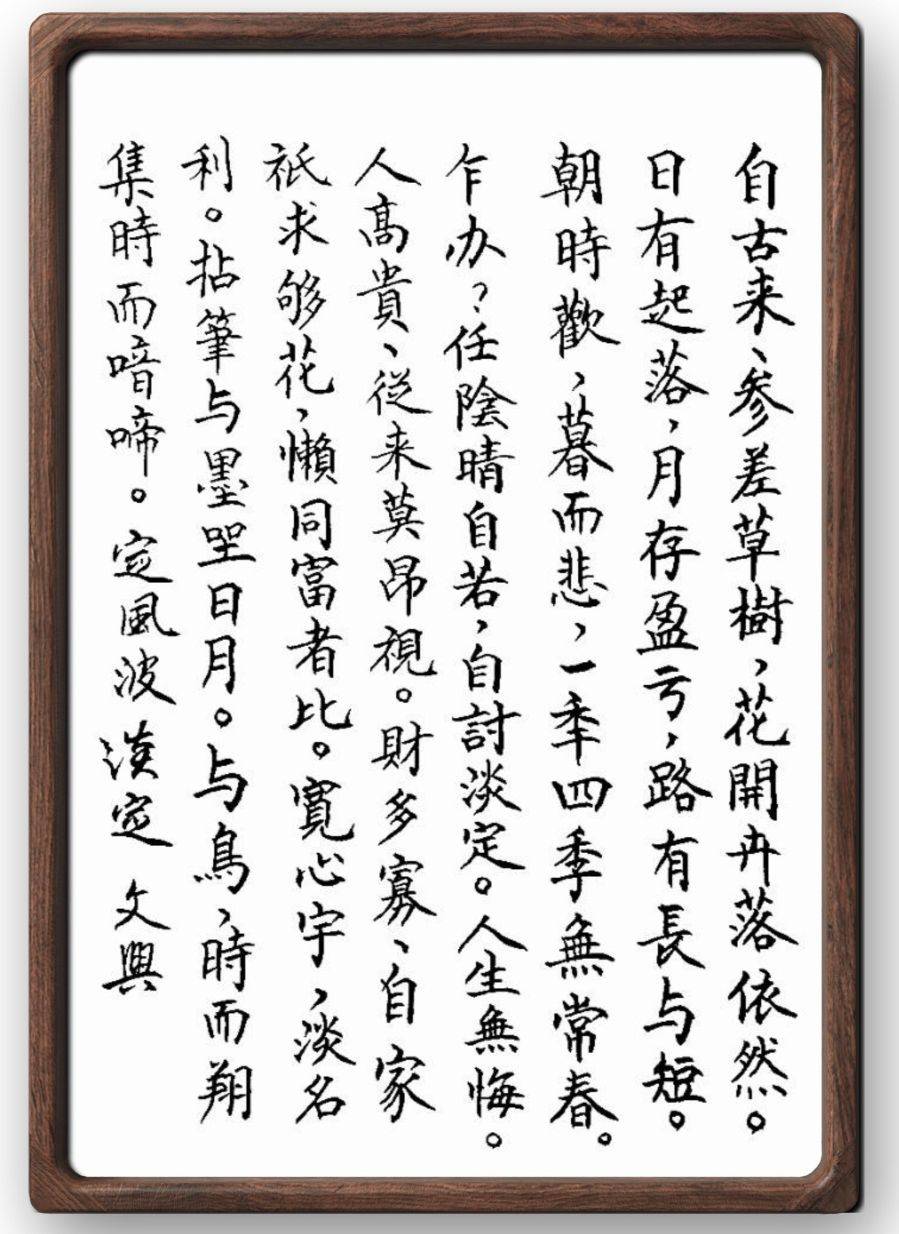 自古来、参差草樹，花開卉落依然。
日有起落，月存盈亏，路有長与短。
朝時歡，暮而悲，一秊四季無常春。
乍办？任陰晴自若，自討淡定。人生無悔。
人高貴、從来莫昂視。財多寡、自家
祇求够花，懒同富者比。寬心宇，淡名
利。拈筆与墨塱日月。与鳥，時而翔
集時而喑啼。定風波 淡定 文興